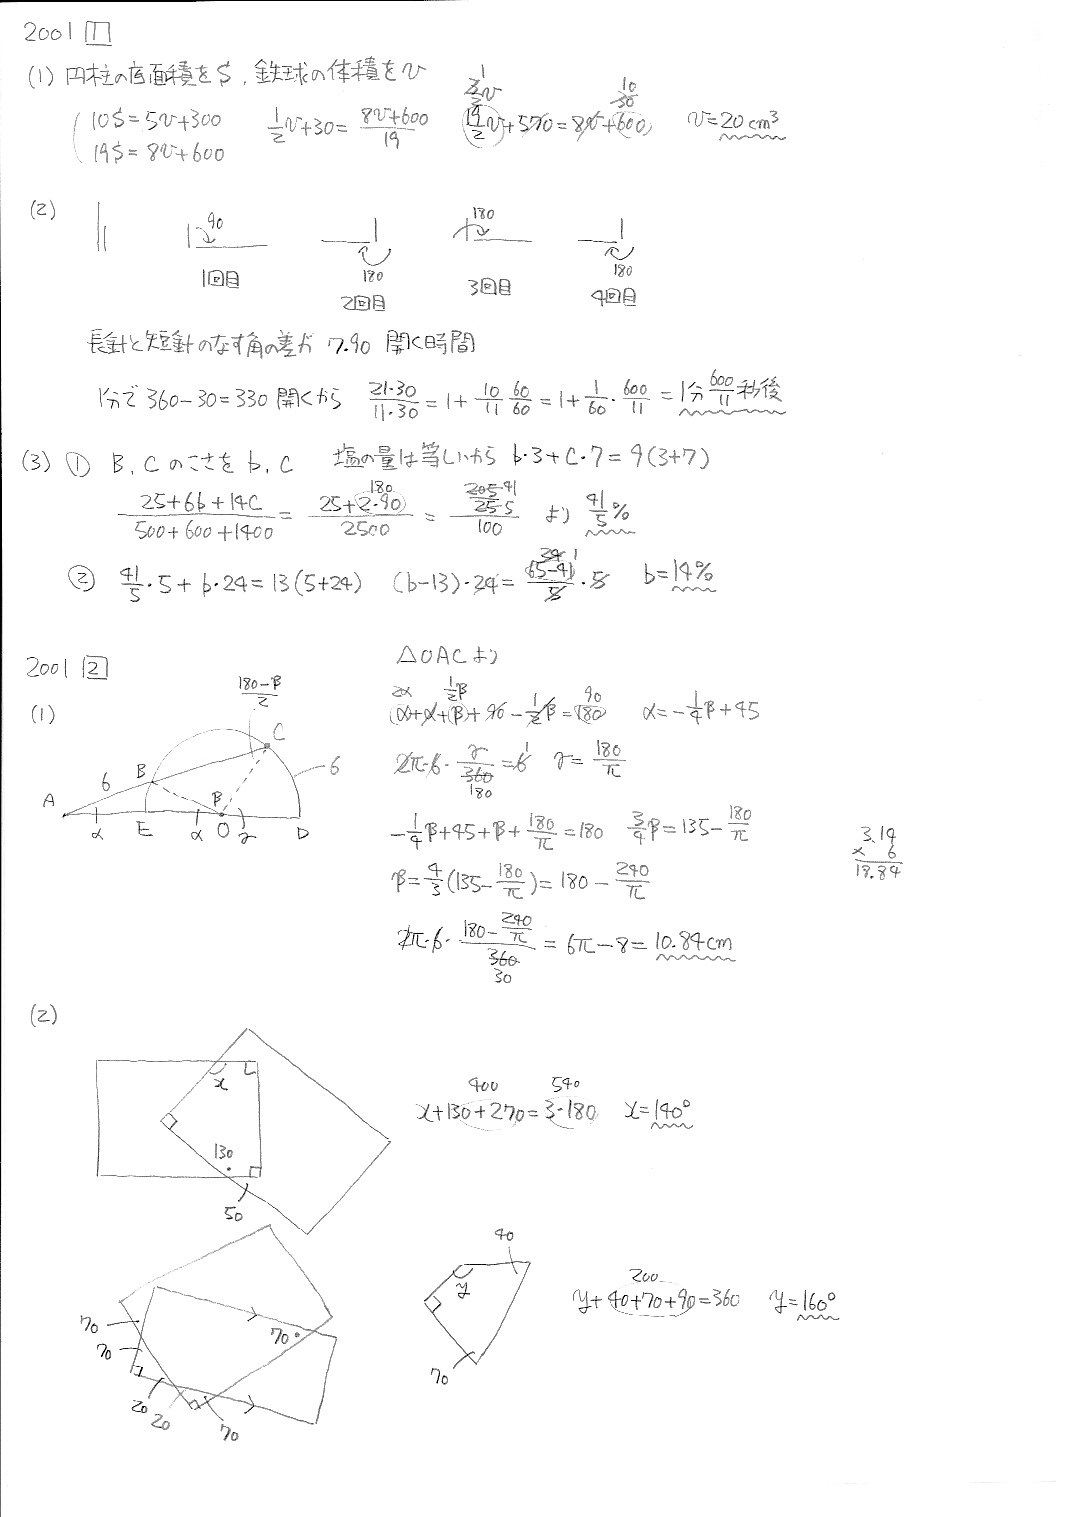 2001 1
(1) 円柱の底面積をS, 鉄球の体積をv
10S = 5v+300
19S = 8v+600
1/2 v+30 = (8v+600)/19
19/2 v+570 = 8v+600
3/2 v 1 10 30
v = 20cm³
(2)
90 180 180 180
1回目 2回目 3回目 4回目
長針と短針のなす角の差が 7・90 開く時間
1分で 360-30=330 開くから 21・30/11・30 = 1+ 10/11 60/60 = 1+ 1/60 ・ 600/11 = 1分 600/11 秒後
(3) ① B, Cのこさを b, c 塩の量は等しいから b・3+c・7 = 9(3+7)
(25+6b+14c)/(500+600+1400) = (25+2・90)/2500 = (205/25)/100 より 41/5 %
180 41 5
② 41/5 ・5+b・24 = 13(5+24) (b-13)・24 = (65-41)/5 ・5 b=14%
24 1
2001 2
△OACより
(1)
(180-β)/2
A B C D E O 6 6 α α β γ
α+α+β+90-1/2 β = 180 α = -1/4 β+45
2α 1/2 β 90
2π・6・γ/360 = 6 γ = 180/π
180 1
-1/4 β+45+β+180/π = 180 3/4 β = 135-180/π
β = 4/3 (135-180/π) = 180-240/π
2π・6・(180-240/π)/360 = 6π-8 = 10.84cm
30
3.14
× 6
18.84
(2)
x 130 50
400 540
x+130+270 = 3・180 x=140°
70 70 20 20 70 70
40 y 70
200
y+40+70+90=360 y=160°